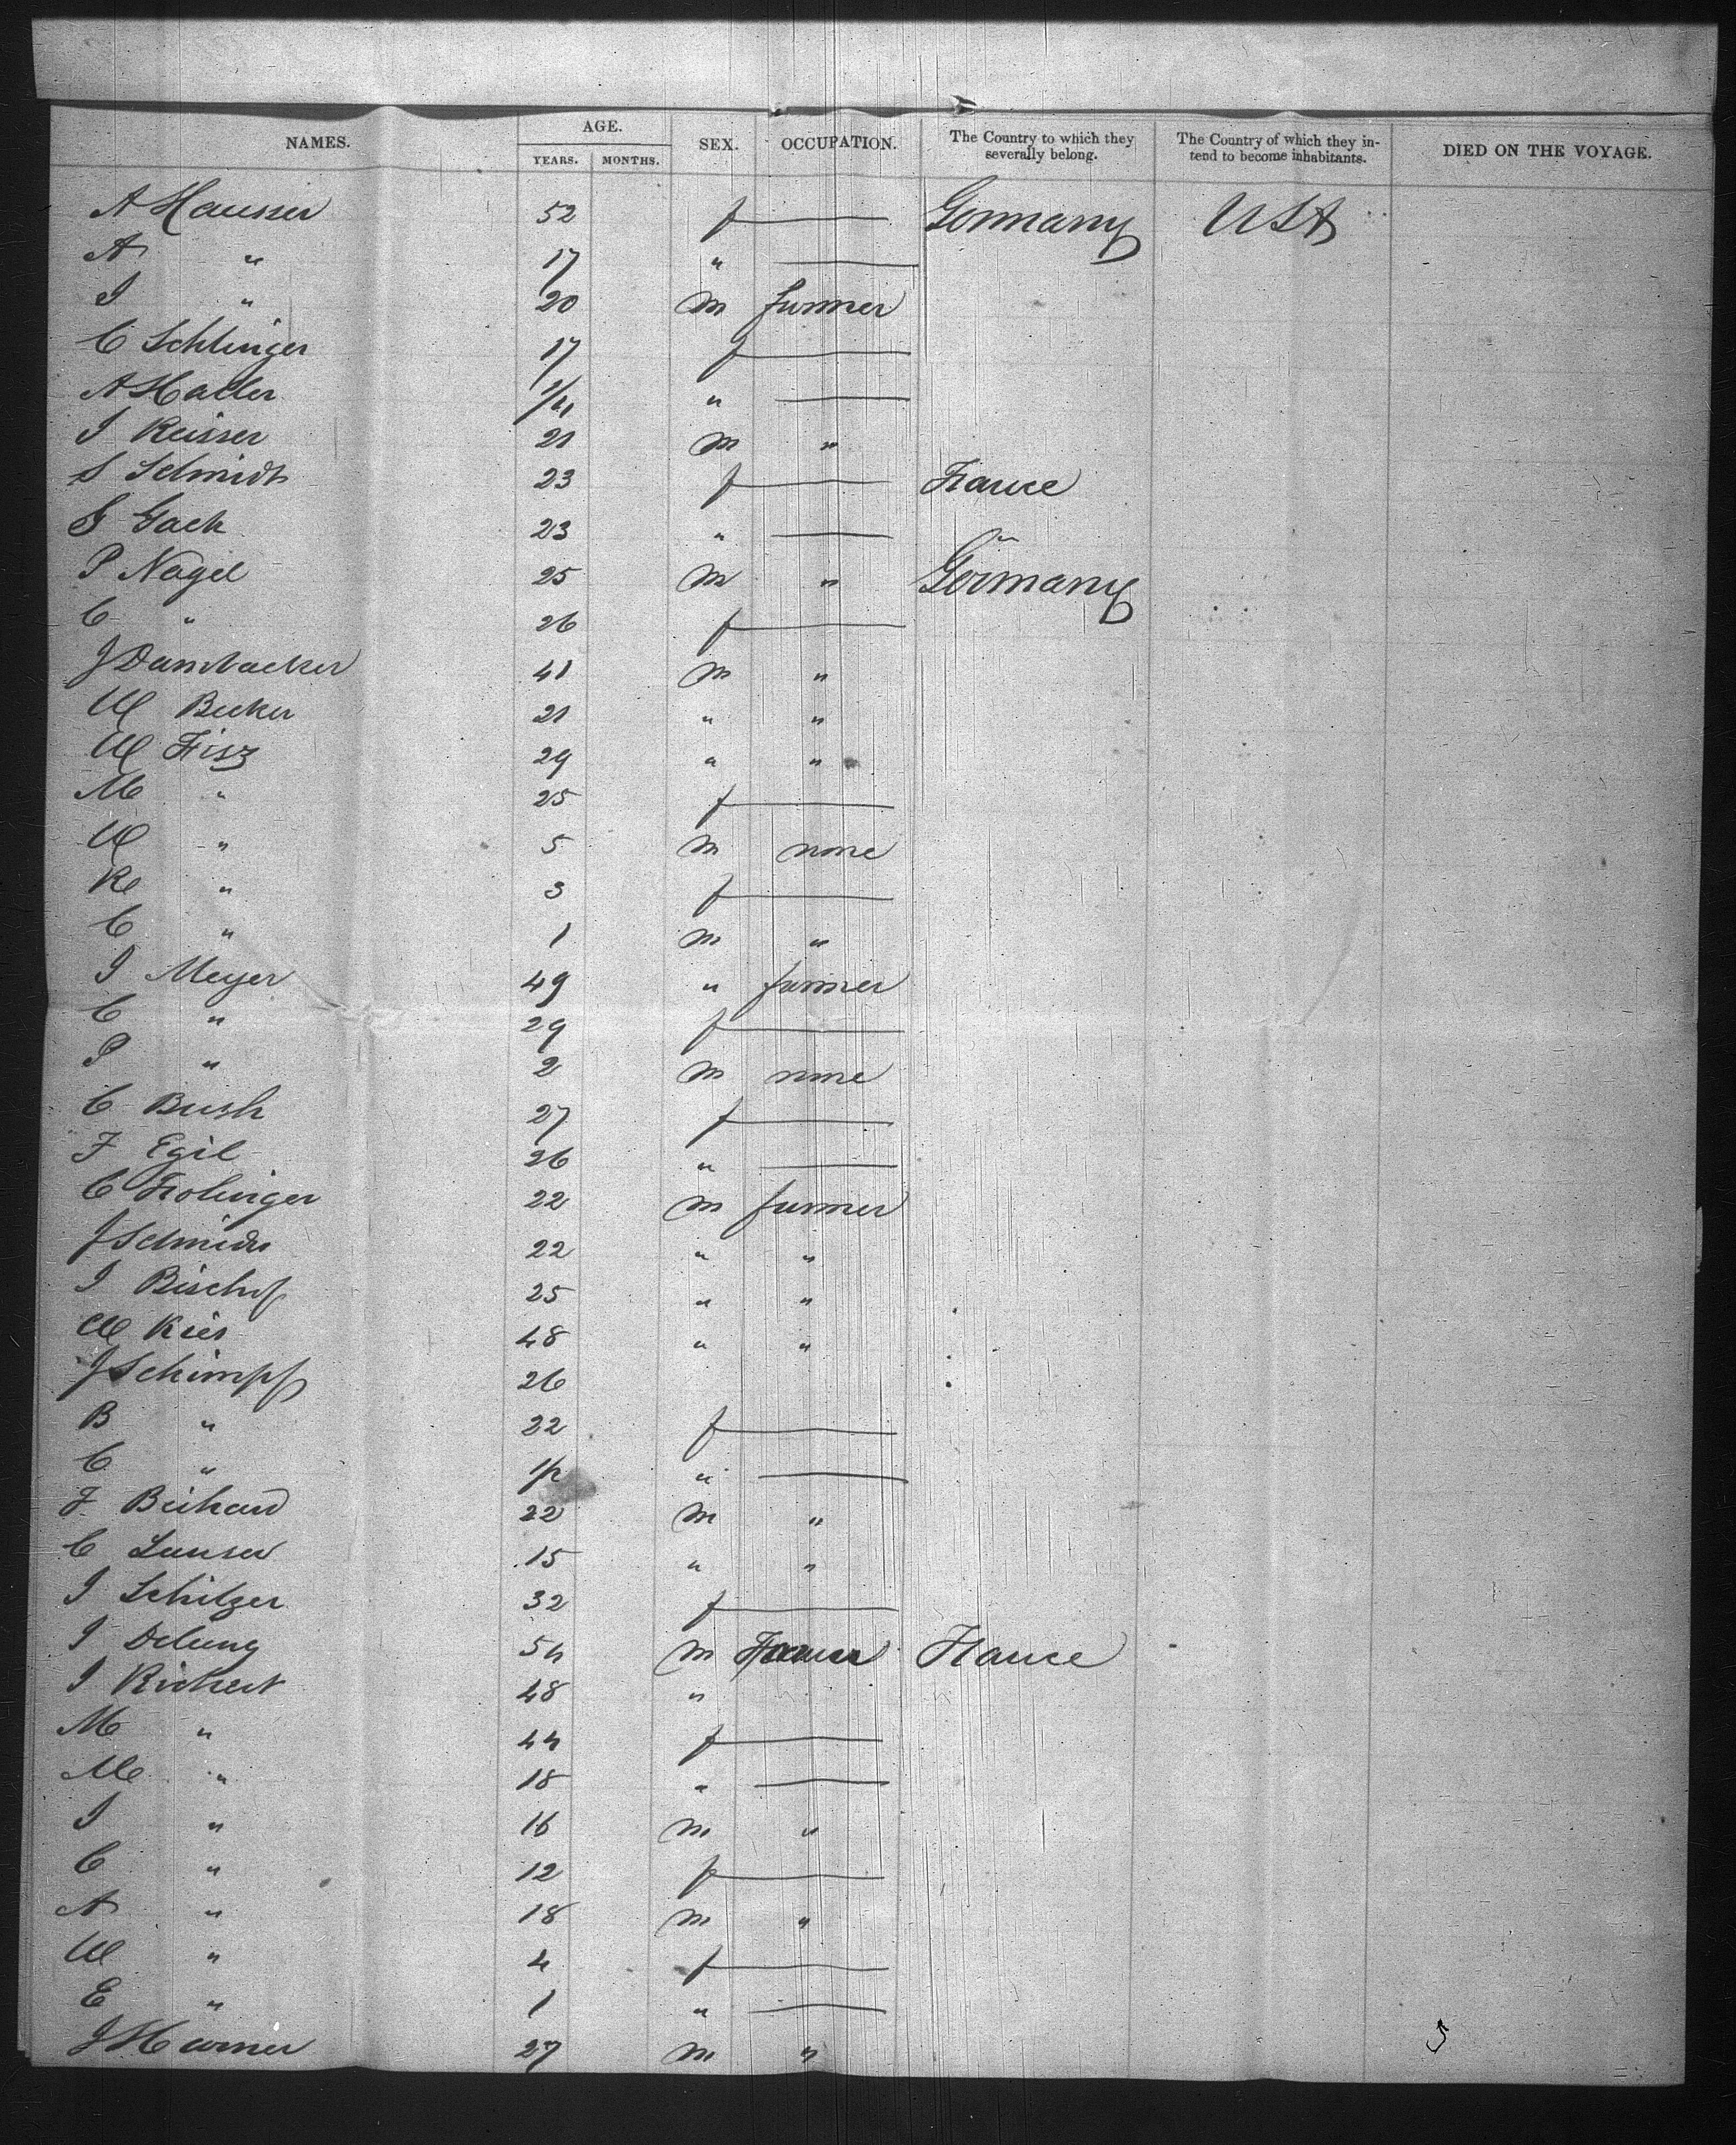 NAMES. AGE. YEARS. MONTHS. SEX. OCCUPATION. The Country to which they severally belong. The Country of which they intend to become inhabitants. DIED ON THE VOYAGE.
A Hausser 52 f — Germany USA
A " 17 " —
J " 20 m farmer
C Schlinger 17 f —
A Haller " —
J Reisser 21 m "
S Schmidt 23 f — France
G Gack 23 " — "
P Nagel 25 m " Germany
C " 26 f —
J Dambacher 41 m "
W Becker 21 " "
W Fisz 29 " "
M " 25 f —
W " 5 m none
K " 3 f —
C " 1 m "
J Meyer 49 " farmer
C " 29 f —
P " 2 m none
C Bush 27 f —
F Egil 26 " —
C Frolinger 22 m farmer
J Schmidt 22 " "
J Bischof 25 " "
W Kies 48 " "
J Schimpf 26
B " 22 f —
C " 1/2 " —
F 22 m "
C 15 " "
J Schilzer 32 f —
J 54 m Farmer France
J Rickert 48 "
M " 44 f —
M " 18 " —
J " 16 m "
C " 12 f —
A " 18 m "
W " 4 f —
E " 1 " —
J Harner 27 m "